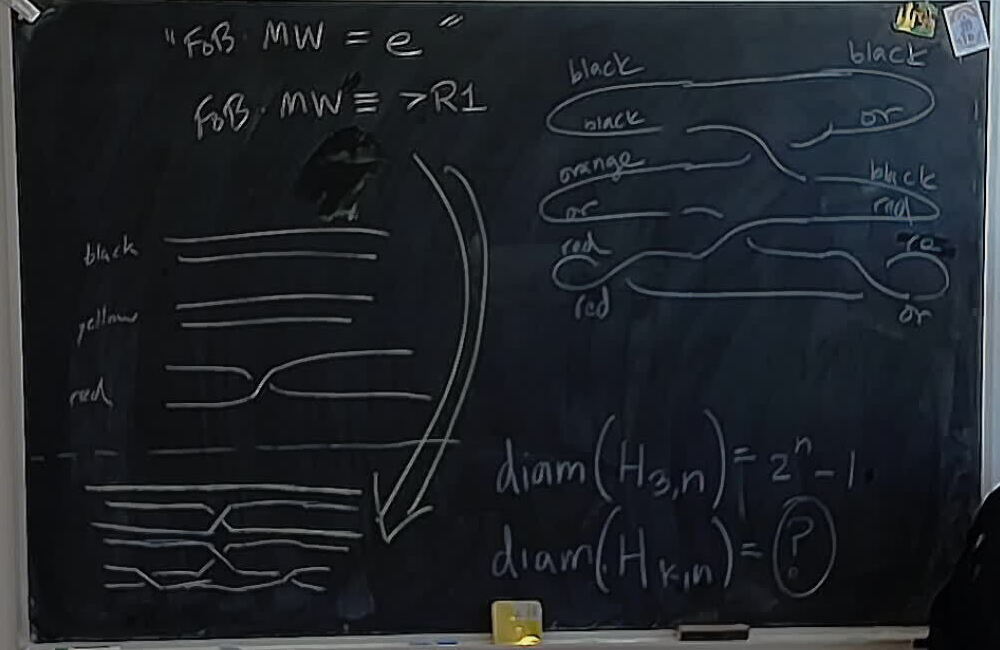 "FoB · MW = e"
FoB · MW ≡ >R1
black
yellow
red
black black
black or
orange black
or red
red re
red or
diam(H₃,ₙ) = 2ⁿ - 1
diam(Hₖ,ₙ) = ?